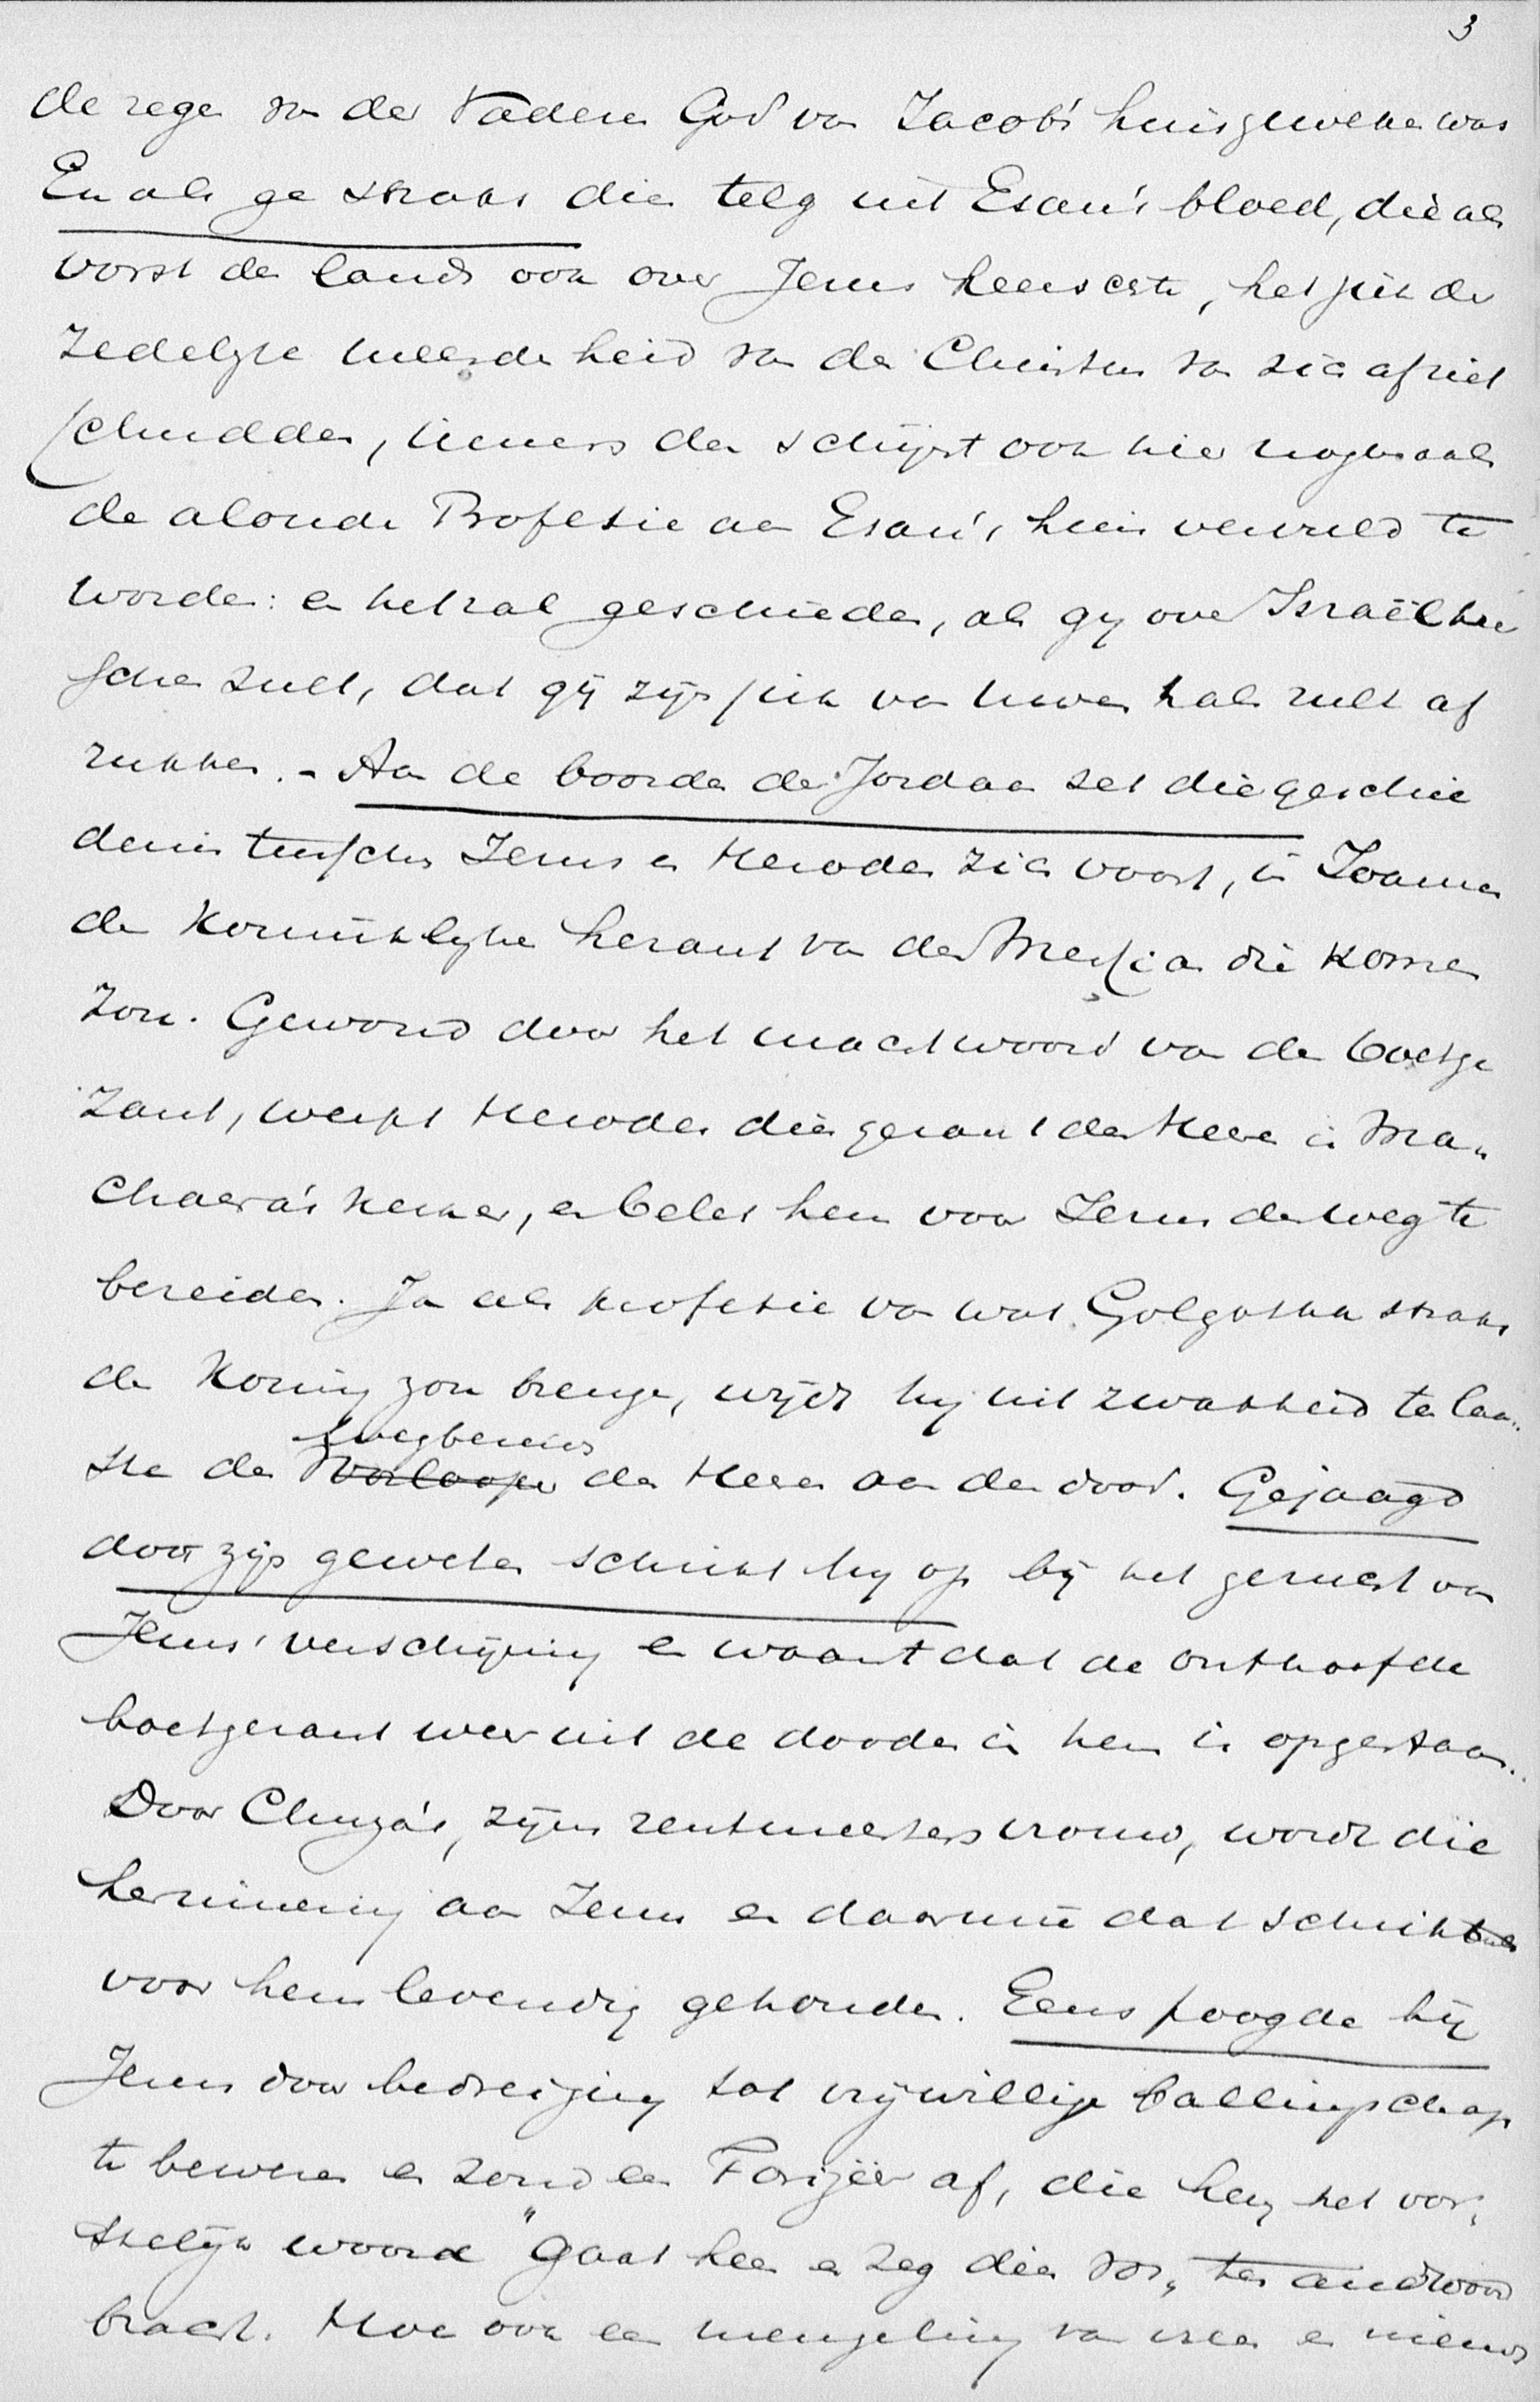 3
de zegen van der Vaderen God van Jacob's huis geweken was
En als ge straks dien telg uit Esau's bloed, die als
vorst des lands ook over Jezus heerscte, het juk der
zedelyke meerderheid van den Christus van zich afziet
schudden, immers dan schijnt ook hier nogmaals
de aloude Profesie aan Esau's huis vervuld te
worden: en het zal geschieden, als gy over Israël heer
schen zult, dat gij zijn juk van uwen hals zult af
rukken. - Aan de boorden der Jordaan zet die geschie
denis tusschen Jezus en Herodes zich voort, in Joannes
den Koninklyken heraut van den Messias die komen
zou. Gewond door het machtwoord van den boetge
zant, werpt Herodes dien gezant des Heeren in Ma-
chaera's kerker, en belet hem voor Jezus den weg te
bereiden. Ja als profetie van wat Golgotha straks
den Koning zou brengen, wijdt hij uit zwakheid ten laat-
wegbereider
ste den Voorlooper des Heeren aan den dood. Gejaagd
door zijn geweten schrikt hij op bij het gerucht van
Jezus' verschijning en waant dat de onthoofde
boetgezant weer uit de dooden in hem is opgestaan.
Door Chuza's, zijns rentmeesters vrouw, wordt die
herinnering aan Jezus en daarmeê dat schrikbeeld
voor hem levendig gehouden. Eens poogde hij
Jezus door bedreiging tot vrijwillige ballingschap
te bewegen en zond een Farizeër af, die hem het vor-
stelijk woord "Gaat heen en zeg dien vos" ten andwoord
bracht. Hoe ook een mengeling van vrees en nieuws